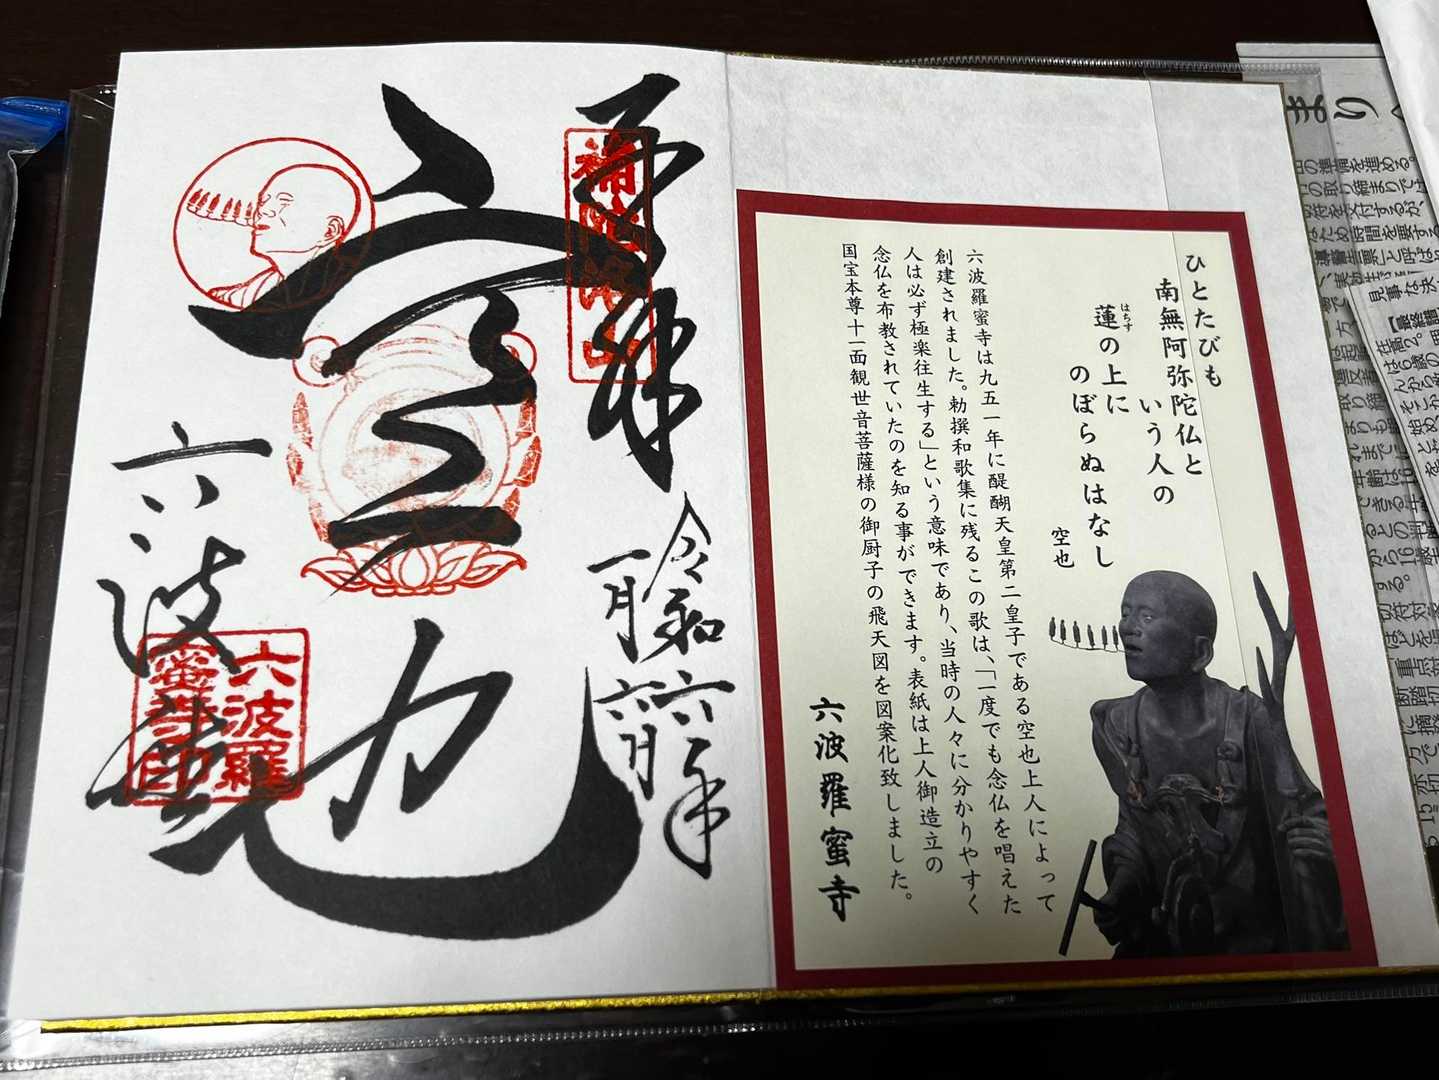 ひとたびも
南無阿弥陀仏と
いう人の
はちす
蓮の上に
のぼらぬはなし
空也
六波羅蜜寺は九五一年に醍醐天皇第二皇子である空也上人によって
創建されました。勅撰和歌集に残るこの歌は、「一度でも念仏を唱えた
人は必ず極楽往生する」という意味であり、当時の人々に分かりやすく
念仏を布教されていたのを知る事ができます。表紙は上人御造立の
国宝本尊十一面観世音菩薩様の御厨子の飛天図を図案化致しました。
六波羅蜜寺
奉拝
補陀洛山
令和六年
一月六日
空也
六波羅蜜寺
六波羅
蜜寺印